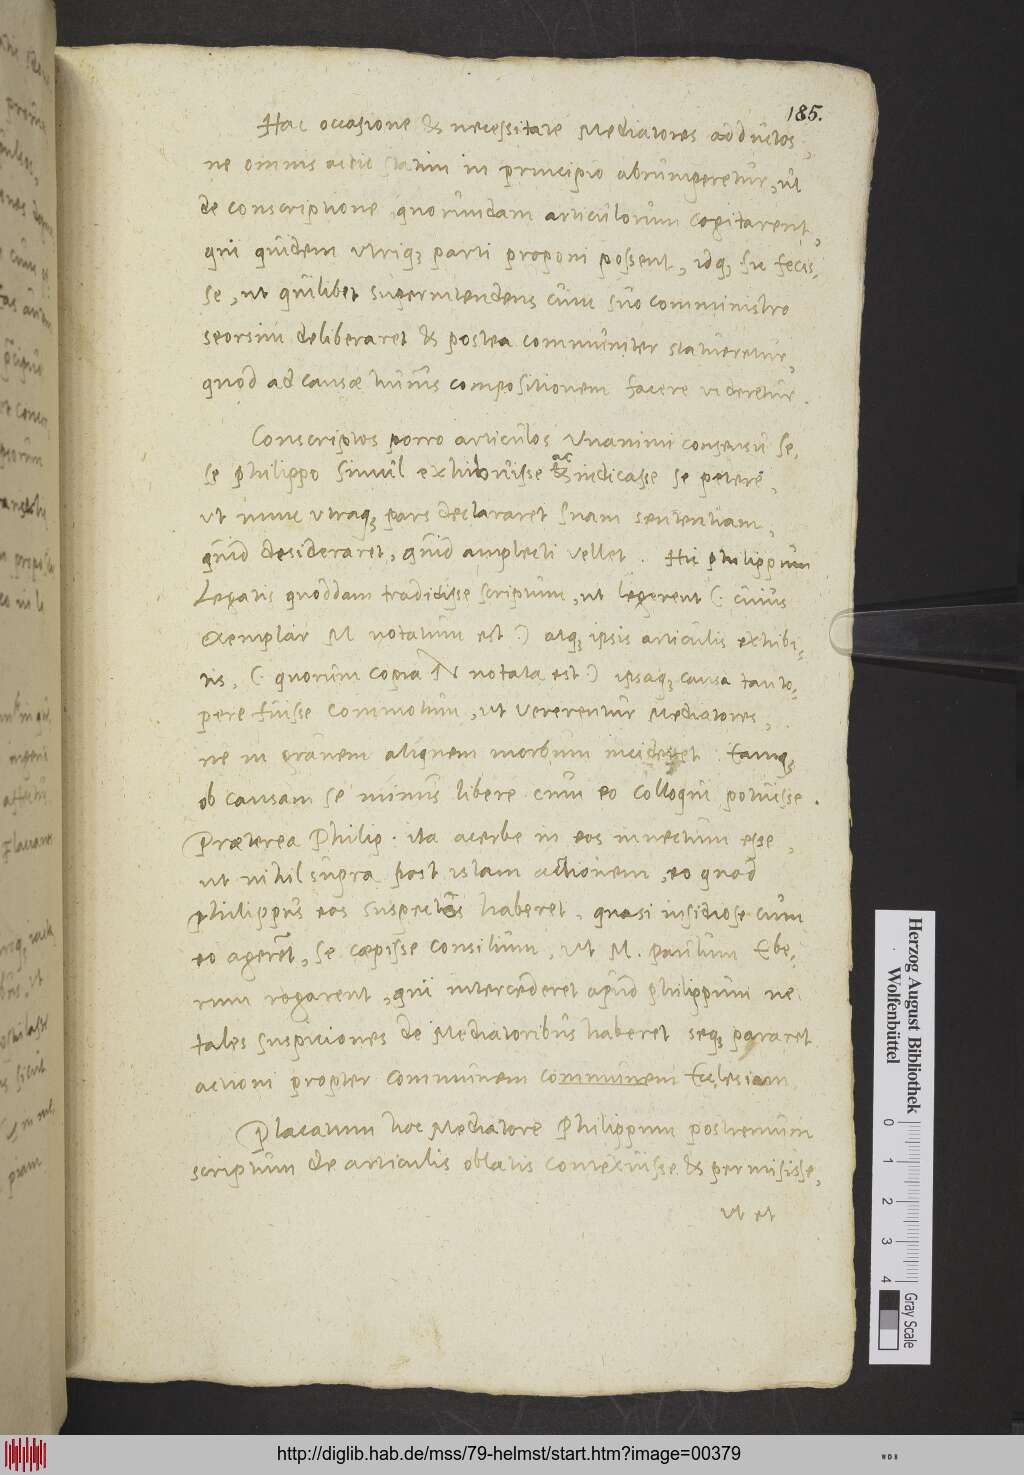 185.
Hac occasione & necessitate Mediatores adductos,
ne omnis actio statim in principio abrumperetur, ut
de conscriptione quorundam articulorum cogitarent,
qui quidem utriq; parti proponi possent, idq; sic fecis-
se, ut quilibet superintendens cum suo comministro
seorsim deliberaret & postea communiter statueretur,
quod ad causæ huius compositionem facere videretur.
Conscriptos porro articulos unanimi consensu se-
se Philippo simul exhibuisse & ac indicasse se petere,
ut nunc utraq; pars declararet suam sententiam,
quid desideraret, quid amplecti vellet. Hic Philippum
Legatis quoddam tradidisse scriptum, ut legerent (: cuius
exemplar M notatum est :) atq; ipsis articulis exhibi-
tis, (: quorum copia N notata est :) ipsaq; causa tanto-
pere fuisse commotum, ut vererentur Mediatores,
ne in gravem aliquem morbum incideret. Eamq;
ob causam se minus libere cum eo colloqui potuisse.
Præterea Philip. ita acerbe in eos invectum esse,
ut nihil supra post istam actionem, eo quod
Philippus eos suspectos haberet, quasi insidiose cum
eo agerent, se cæpisse consilium, ut M. Paulum Ebe-
rum rogarent, qui intercederet apud Philippum ne
tales suspiciones de Mediatoribus haberet seq; pararet
actioni propter communem communem Ecclesiam.
Placatum hoc Mediatore Philippum postremum
scriptum de articulis oblatis contexuisse & permisisse,
ut et
Herzog August Bibliothek
Wolfenbüttel
0 1 2 3 4
Gray Scale
http://diglib.hab.de/mss/79-helmst/start.htm?image=00379
WDB